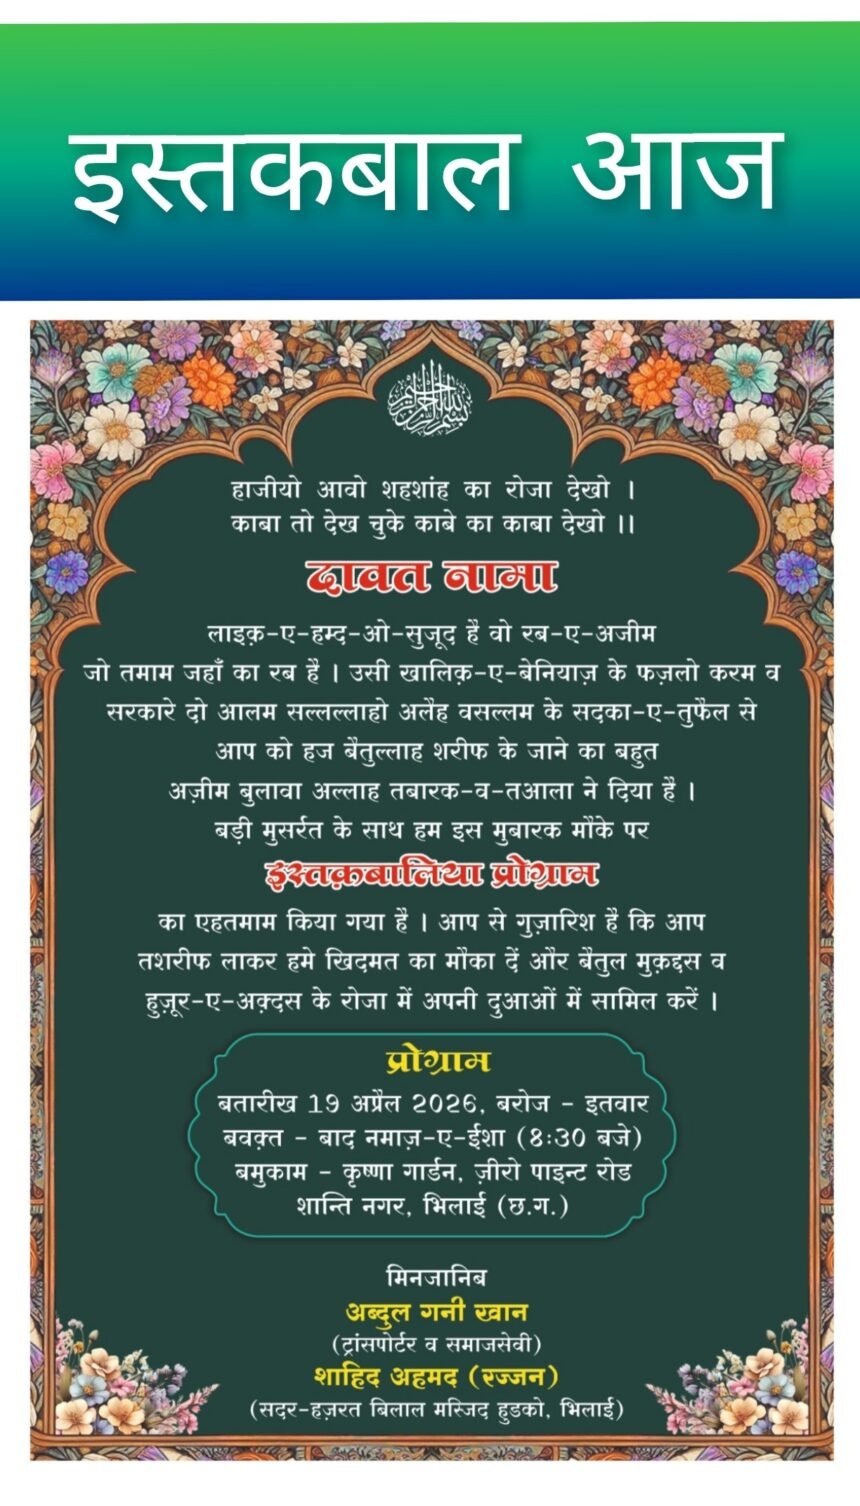 इस्तकबाल आज
بسم الله الرحمن الرحيم
हाजीयो आवो शहशांह का रोजा देखो ।
काबा तो देख चुके काबे का काबा देखो ।।
दावत नामा
लाइक़-ए-हम्द-ओ-सुजूद है वो रब-ए-अजीम
जो तमाम जहाँ का रब है । उसी खालिक़-ए-बेनियाज़ के फज़लो करम व
सरकारे दो आलम सल्लल्लाहो अलैह वसल्लम के सदका-ए-तुफैल से
आप को हज बैतुल्लाह शरीफ के जाने का बहुत
अज़ीम बुलावा अल्लाह तबारक-व-तआला ने दिया है ।
बड़ी मुसर्रत के साथ हम इस मुबारक मौके पर
इस्तक़बालिया प्रोग्राम
का एहतमाम किया गया है । आप से गुज़ारिश है कि आप
तशरीफ लाकर हमे खिदमत का मौका दें और बैतुल मुक़द्दस व
हुज़ूर-ए-अक़्दस के रोजा में अपनी दुआओं में सामिल करें ।
प्रोग्राम
बतारीख 19 अप्रैल 2026, बरोज - इतवार
बवक़्त - बाद नमाज़-ए-ईशा (8:30 बजे)
बमुकाम - कृष्णा गार्डन, ज़ीरो पाइन्ट रोड
शान्ति नगर, भिलाई (छ.ग.)
मिनजानिब
अब्दुल गनी खान
(ट्रांसपोर्टर व समाजसेवी)
शाहिद अहमद (रज्जन)
(सदर-हज़रत बिलाल मस्जिद हुडको, भिलाई)